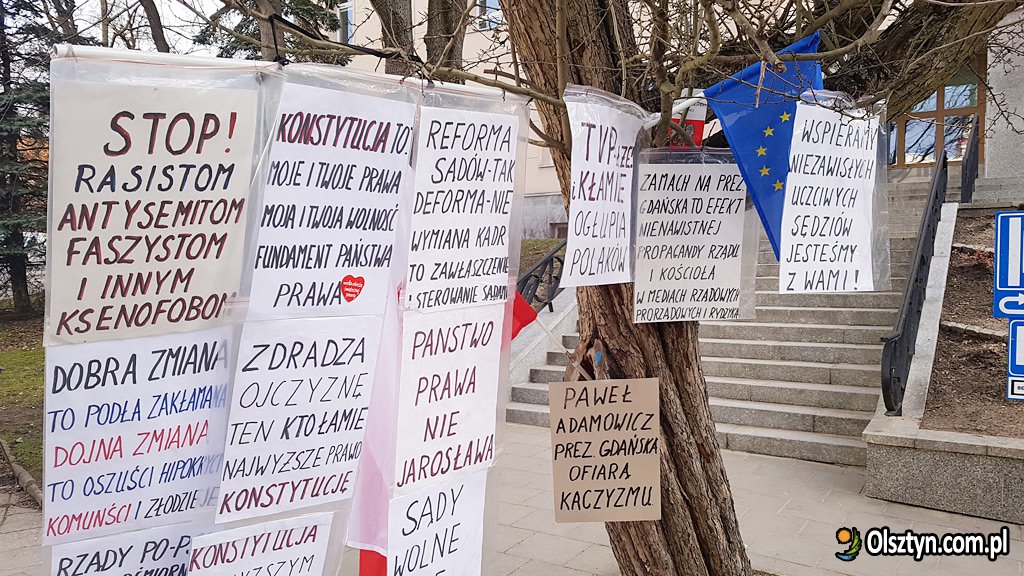 STOP!
RASISTOM
ANTYSEMITOM
FASZYSTOM
I INNYM
KSENOFOBOM
KONSTYTUCJA TO:
MOJE I TWOJE PRAWA
MOJA I TWOJA WOLNOŚĆ
FUNDAMENT PAŃSTWA
PRAWA
REFORMA
SĄDÓW-TAK
DEFORMA-NIE
WYMIANA KADR
TO ZAWŁASZCZENIE
! STEROWANIE SĄDAMI
TVP
KŁAMIE
OGŁUPIA
POLAKÓW
ZAMACH NA PREZ
GDAŃSKA TO EFEKT
NIENAWISTNEJ
PROPAGANDY RZĄDU
I KOŚCIOŁA
W MEDIACH RZĄDOWYCH
PRORZĄDOWYCH I RYDZYKA
WSPIERAMY
NIEZAWISŁYCH
UCZCIWYCH
SĘDZIÓW
JESTEŚMY
Z WAMI!
DOBRA ZMIANA
TO PODŁA ZAKŁAMANA
DOJNA ZMIANA
TO OSZUŚCI HIPOKRYCI
KOMUNŚCI I ZŁODZIEJE
ZDRADZA
OJCZYZNĘ
TEN KTO ŁAMIE
NAJWYŻSZE PRAWO
KONSTYTUCJE
PANSTWO
PRAWA
NIE
JAROSŁAWA
PAWEŁ
ADAMOWICZ
PREZ GDAŃSKA
OFIARĄ
KACZYZMU
RZĄDY PO-P
KONSTYTUCJA
SĄDY
WOLNE
Olsztyn.com.pl